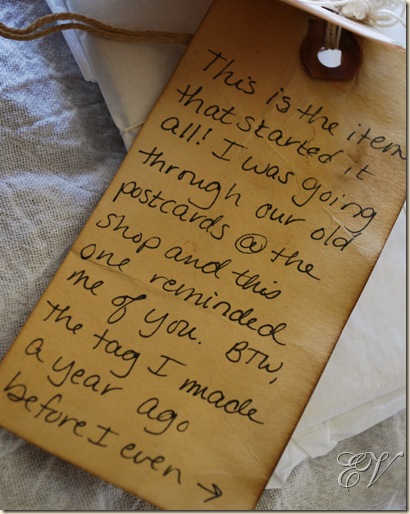 This is the item
that started it
all! I was going
through our old
postcards @ the
shop and this
one reminded
me of you. BTW,
the tag I made
a year ago
before I even →
EV